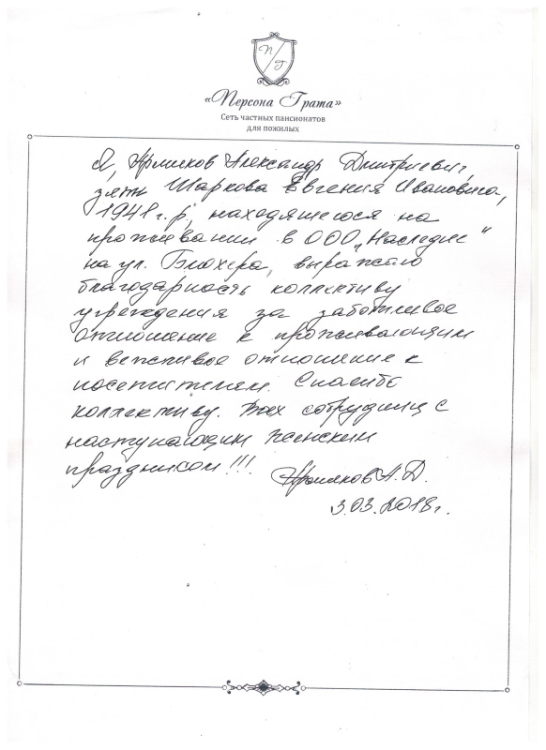 П/Г
«Персона Грата»
Сеть частных пансионатов
для пожилых
Я, Александр Дмитриевич,
зять Шаркова Евгения Ивановича,
1941 г.р, находящегося на
проживании в ООО „Наследие“
на ул. Блюхера, выражаю
благодарность коллективу
учреждения за заботливое
отношение к проживающим
и вежливое отношение к
посетителем. Спасибо
коллективу. Всех сотрудниц с
наступающим женским
праздником!!!
А.Д.
3.03.2018г.